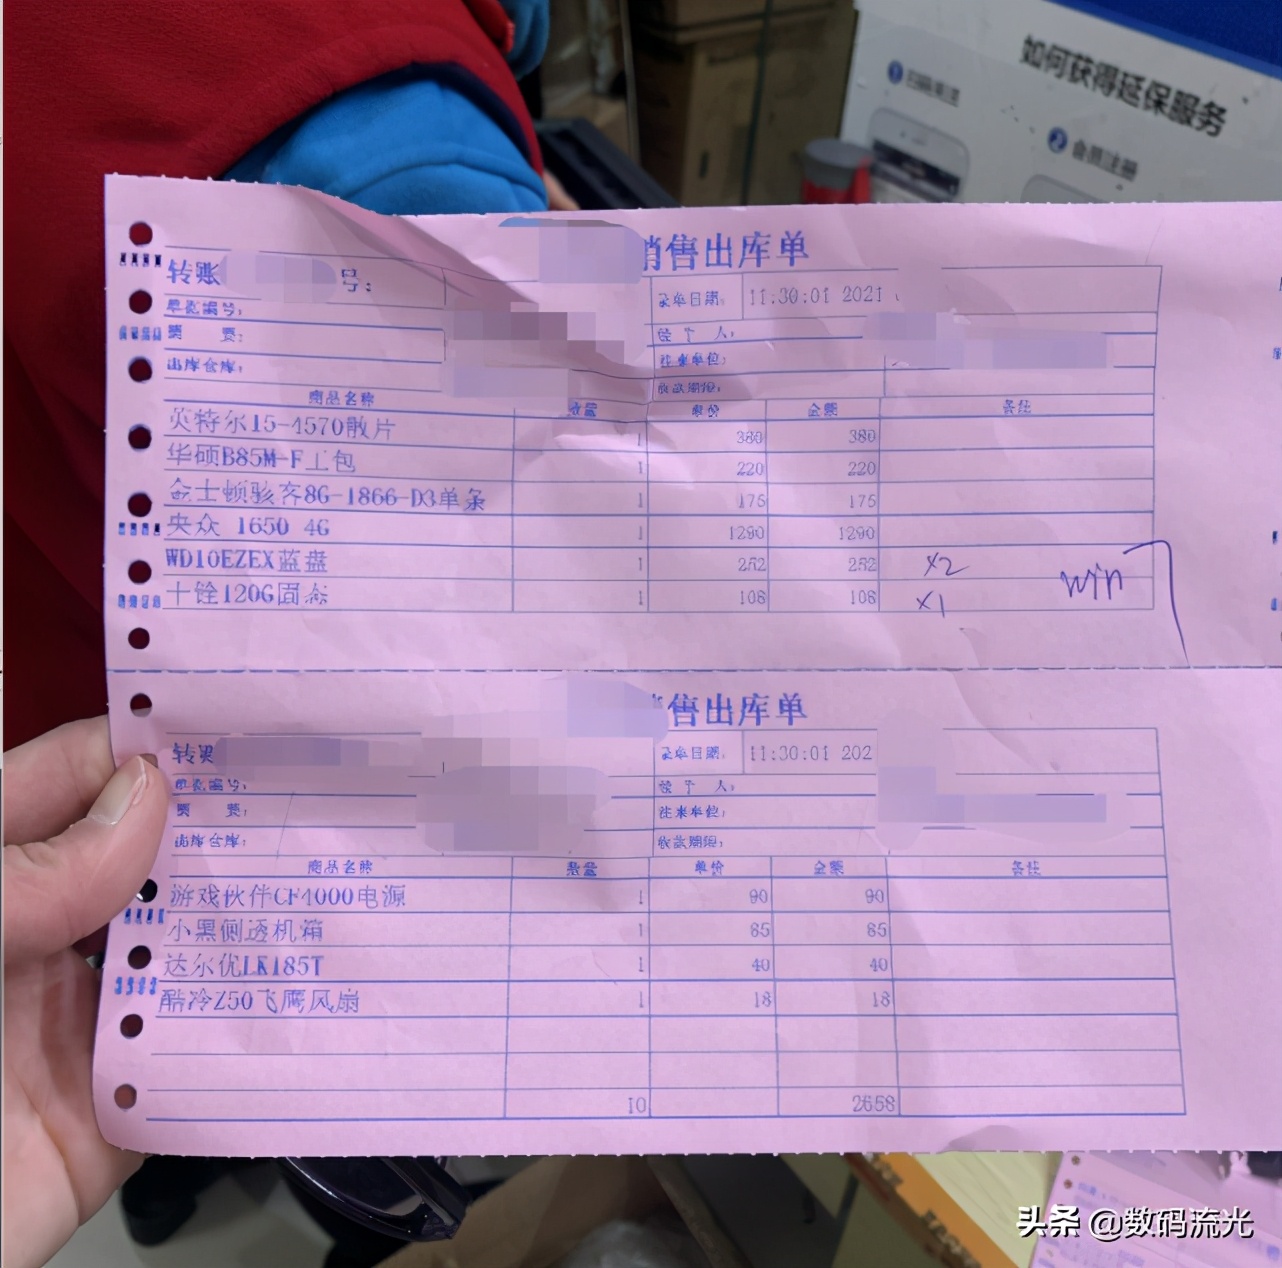 如何获得延保服务
会员注册
销售出库单
转账 号:
录单日期: 11:30:01 2021
单据编号:
经手人:
摘 要:
往来单位:
出库仓库:
收款期限:
商品名称 数量 单价 金额 备注
英特尔I5-4570散片 1 380 380
华硕B85M-F工包 1 220 220
金士顿骇客8G-1866-D3单条 1 175 175
央众 1650 4G 1 1290 1290
WD10EZEX蓝盘 1 252 252 x2
十铨120G固态 1 108 108 x1
win7
售出库单
转账
录单日期: 11:30:01 202
单据编号:
经手人:
摘 要:
往来单位:
出库仓库:
收款期限:
商品名称 数量 单价 金额 备注
游戏伙伴CF4000电源 1 90 90
小黑侧透机箱 1 85 85
达尔优LK185T 1 40 40
酷冷Z50飞鹰风扇 1 18 18
10 2658
头条 @数码流光